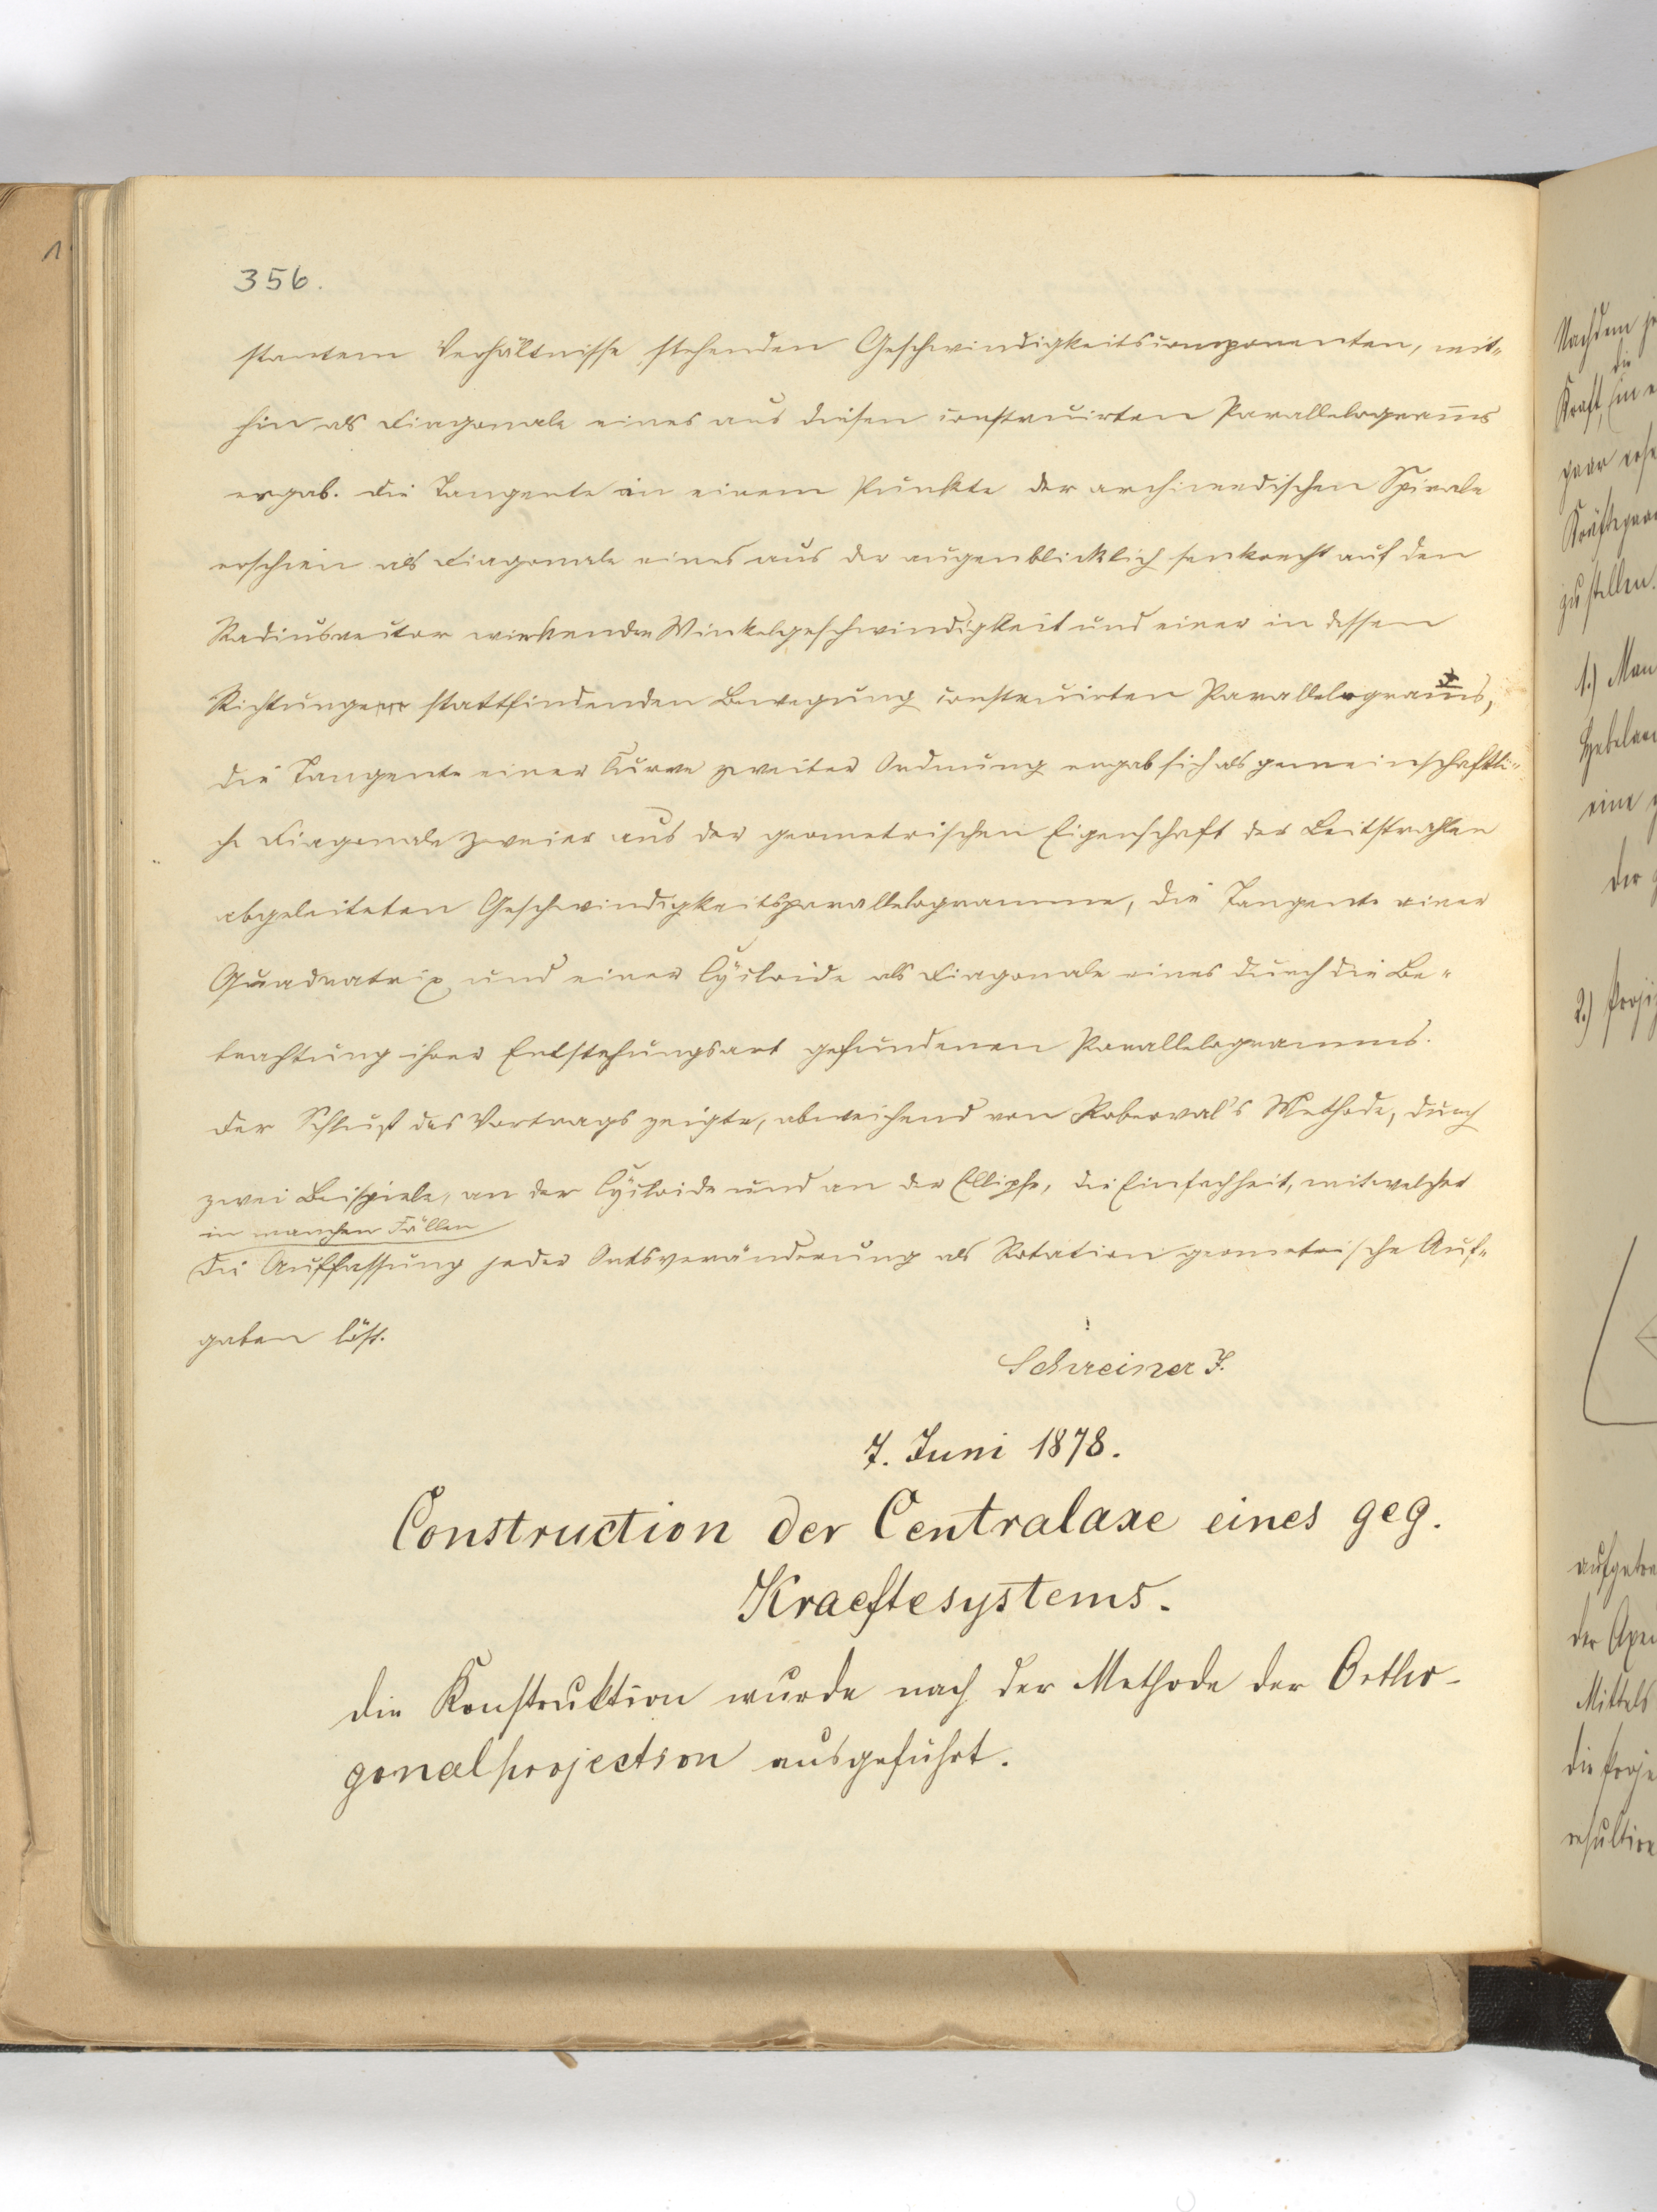 356.
stantem Verhältnisse stehenden Geschwindigkeitscomponenten, mit-
hin als Diagonale eines aus diesen construirten Parallelogram̄s
ergab. Die Tangente in einem Punkte der archimedischen Spirale
erschien als Diagonale eines aus der augenblicklich senkrecht auf den
Radiusvector wirkenden Winkelgeschwindigkeit und einer in dessen
Richtung stattfindenden Bewegung construirten Parallelogram̄s,
die Tangente einer Curve zweiter Ordnung ergab sich als gemeinschaftli-
che Diagonale zweier aus der geometrischen Eigenschaft der Leitstrahlen
abgeleiteten Geschwindigkeitsparallelogramme, die Tangente einer
Quadratrix und einer Cycloide als Diagonale eines durch die Be-
trachtung ihrer Entstehungsart gefundenen Parallelogramms.
Der Schluß des Vortrags zeigte, abweichend von Roberval's Methode, durch
zwei Beispiele, an der Cycloide und an der Ellipse, die Einfachheit, mit welcher
in manchen Fällen
die Auffassung jeder Ortsveränderung als Rotation geometrische Auf-
gaben löst.
Schreiner J.
7. Juni 1878.
Construction der Centralaxe eines geg.
Kraeftesystems.
Die Konstruktion wurde nach der Methode der Ortho-
gonalprojection ausgeführt.
Nachdem
die
Kraft,
zu stellen.
1.) Man
eine
der
2.)
der Axen
Mittels
die